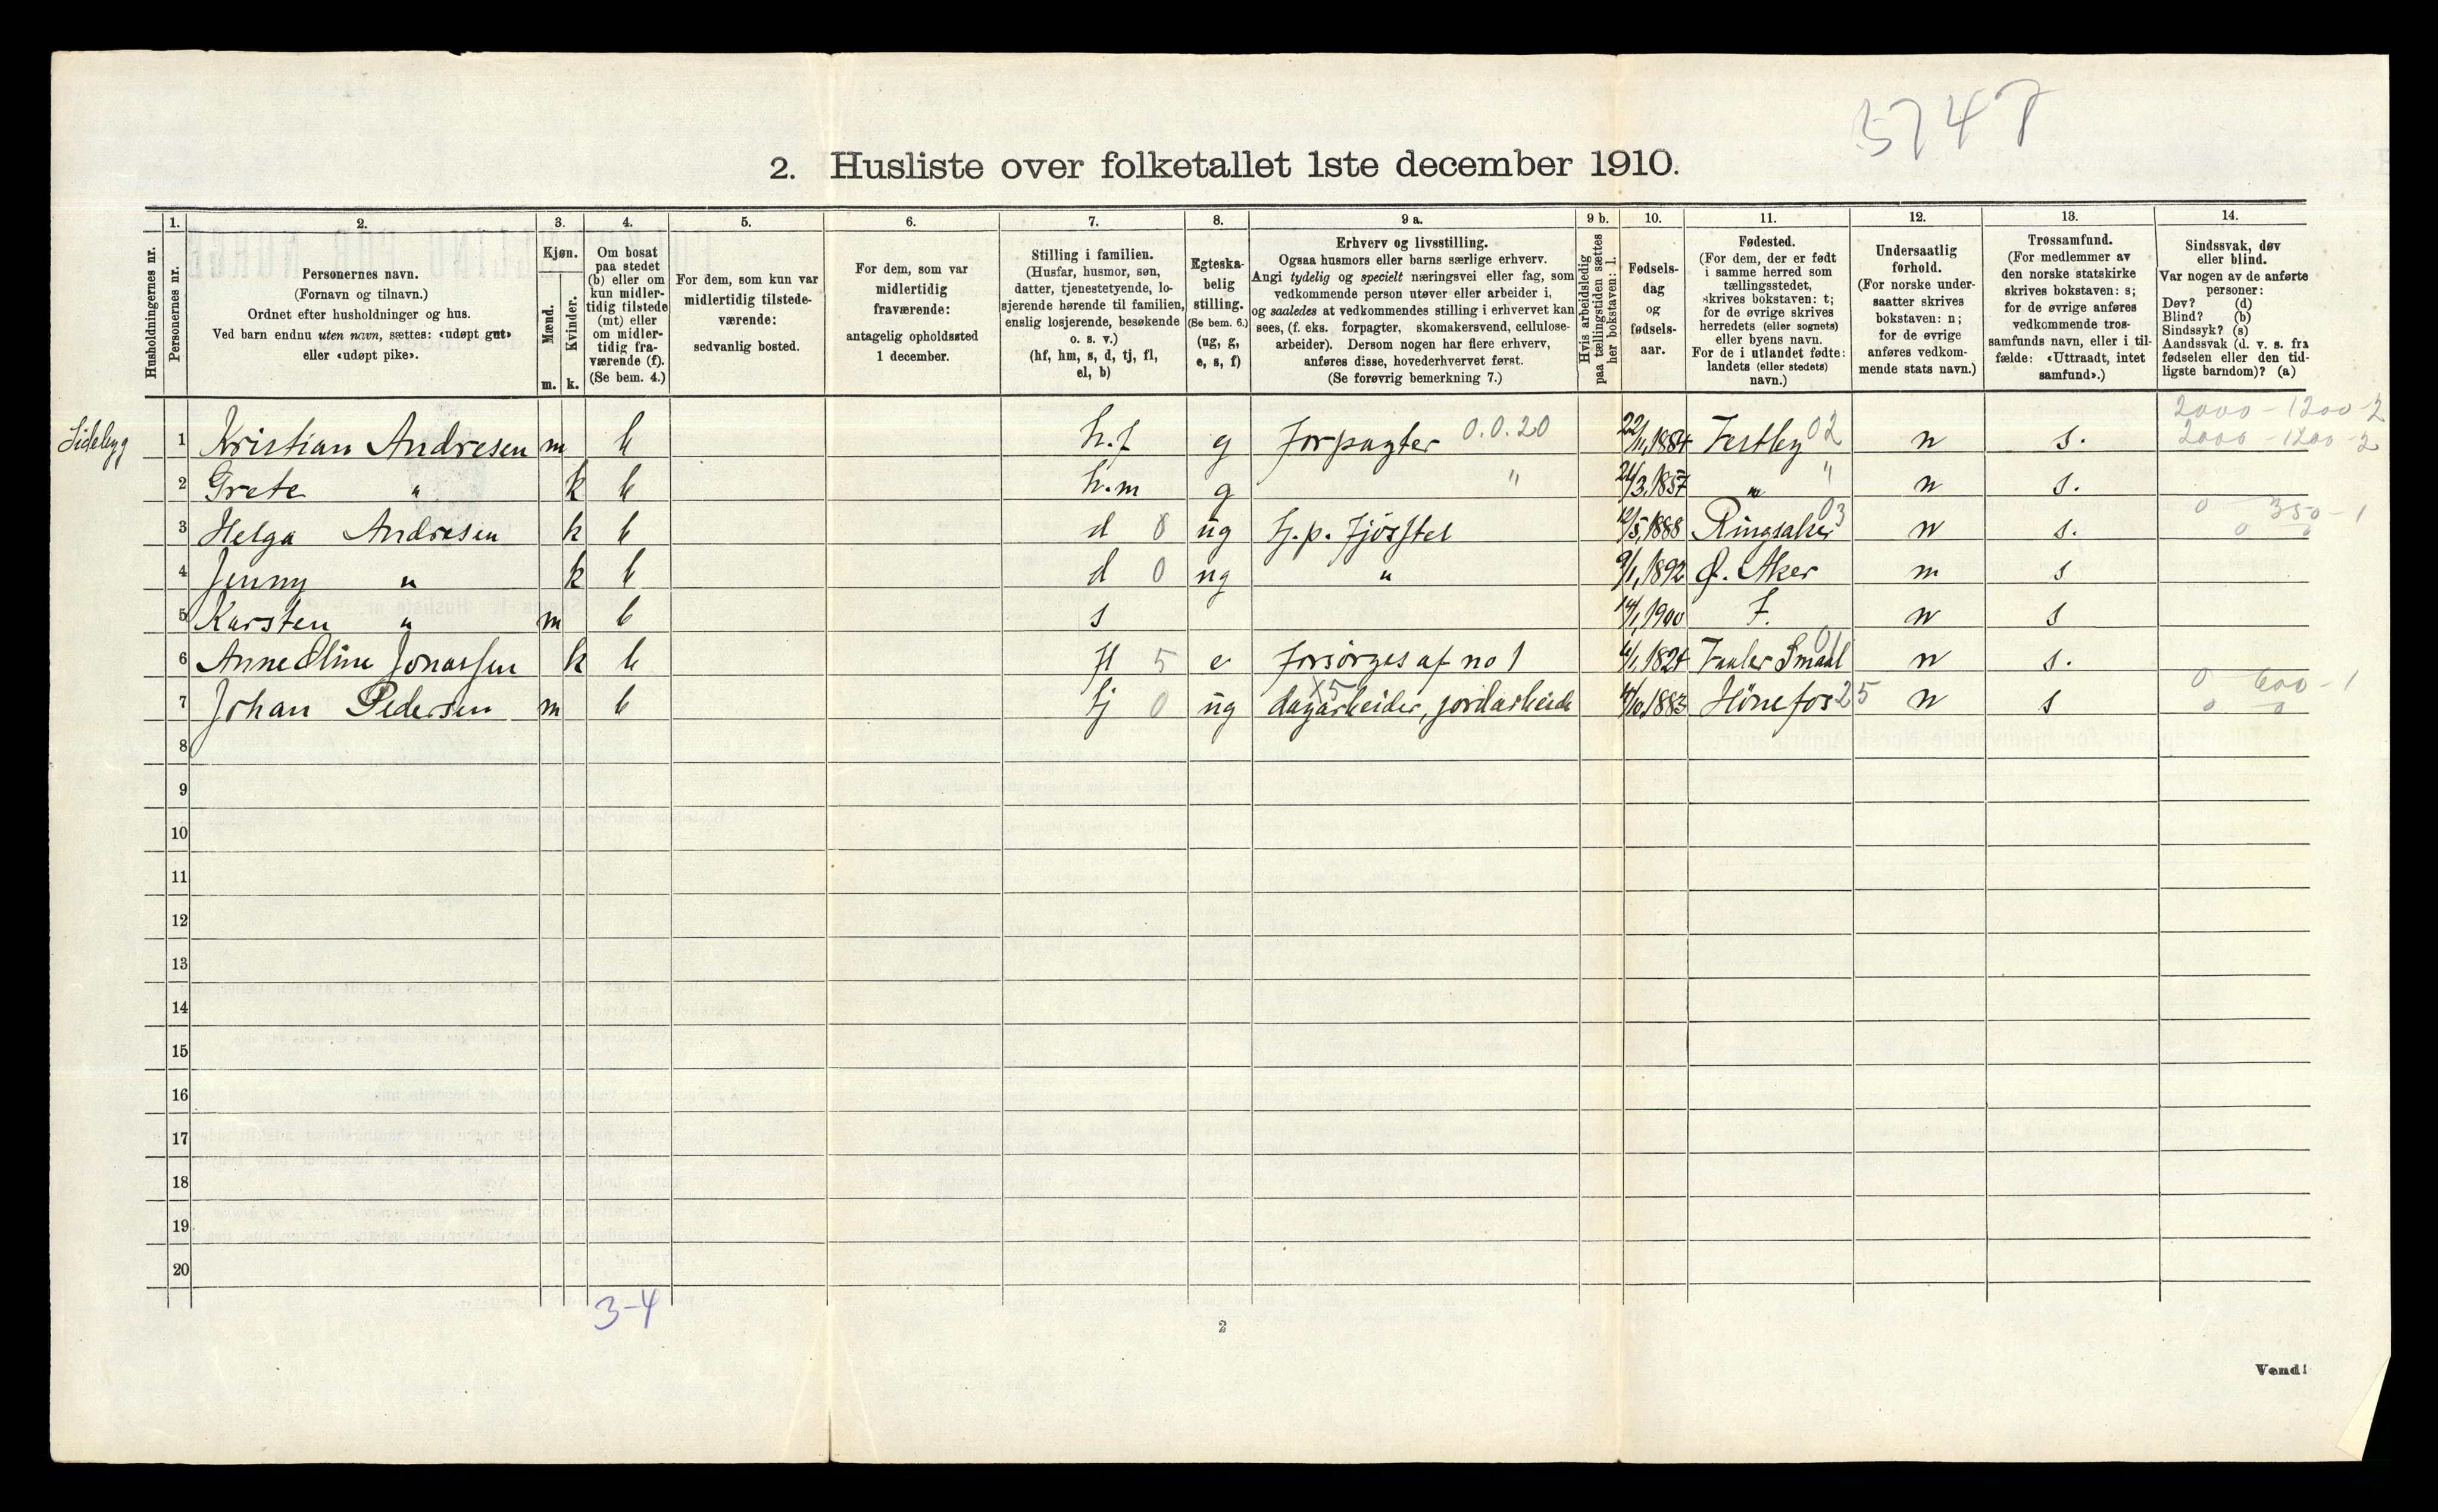 5747
2. Husliste over folketallet 1ste december 1910.
Husholdningernes nr.
1.
Personernes nr.
2.
Personernes navn.
(Fornavn og tilnavn.)
Ordnet efter husholdninger og hus.
Ved barn endnu uten navn, sættes: «udøpt gut»
eller «udøpt pike».
3.
Kjøn.
Mænd.
Kvinder.
m. k.
4.
Om bosat
paa stedet
(b) eller om
kun midler-
tidig tilstede
(mt) eller
om midler-
tidig fra-
værende (f).
(Se bem. 4.)
5.
For dem, som kun var
midlertidig tilstede-
værende:
sedvanlig bosted.
6.
For dem, som var
midlertidig
fraværende:
antagelig opholdssted
1 december.
7.
Stilling i familien.
(Husfar, husmor, søn,
datter, tjenestetyende, lo-
sjerende hørende til familien,
enslig losjerende, besøkende
o. s. v.)
(hf, hm, s, d, tj, fl,
el, b)
8.
Egteska-
belig
stilling.
(Se bem. 6.)
(ug, g,
e, s, f)
9 a.
Erhverv og livsstilling.
Ogsaa husmors eller barns særlige erhverv.
Angi tydelig og specielt næringsvei eller fag, som
vedkommende person utøver eller arbeider i,
og saaledes at vedkommendes stilling i erhvervet kan
sees, (f. eks. forpagter, skomakersvend, cellulose-
arbeider). Dersom nogen har flere erhverv,
anføres disse, hovederhvervet først.
(Se forøvrig bemerkning 7.)
9 b.
Hvis arbeidsledig
paa tællingstiden sættes
her bokstaven: l.
10.
Fødsels-
dag
og
fødsels-
aar.
11.
Fødested.
(For dem, der er født
i samme herred som
tællingsstedet,
skrives bokstaven: t;
for de øvrige skrives
herredets (eller sognets)
eller byens navn.
For de i utlandet fødte:
landets (eller stedets)
navn.)
12.
Undersaatlig
forhold.
(For norske under-
saatter skrives
bokstaven: n;
for de øvrige
anføres vedkom-
mende stats navn.)
13.
Trossamfund.
(For medlemmer av
den norske statskirke
skrives bokstaven: s;
for de øvrige anføres
vedkommende tros-
samfunds navn, eller i til-
fælde: «Uttraadt, intet
samfund».)
14.
Sindssvak, døv
eller blind.
Var nogen av de anførte
personer:
Døv? (d)
Blind? (b)
Sindssyk? (s)
Aandssvak (d. v. s. fra
fødselen eller den tid-
ligste barndom)? (a)
2000 - 1200 - 2
Sidebyg 1 Kristian Andresen m b h.f g forpagter 0.0.20 22/11,1854 Vestby 02 n s. 2000 - 1200 - 2
2 Grete " k b h.m g " 21/3,1857 " " n s.
3 Helga Andresen k b d 8 ug h.p. fjösstel 12/5,1888 Ringsaker 03 n s. 0 350 - 1
0 0
4 Jenny " k b d 0 ug " 9/1,1892 Ø. Aker n s
5 Karsten " m b s 14/1,1900 t. n s
6 Anne Oline Jonassen k b fl 5 e forsörges af no 1 6/1,1824 Vaaler Smaal 01 n s.
7 Johan Pedersen m b tj 0 ug dagarbeider, jordarbeide x5 4/10,1883 Hönefos 25 n s 0 600 - 1
0 0
8
9
10
11
12
13
14
15
16
17
18
19
20
3-4
2
Vend!